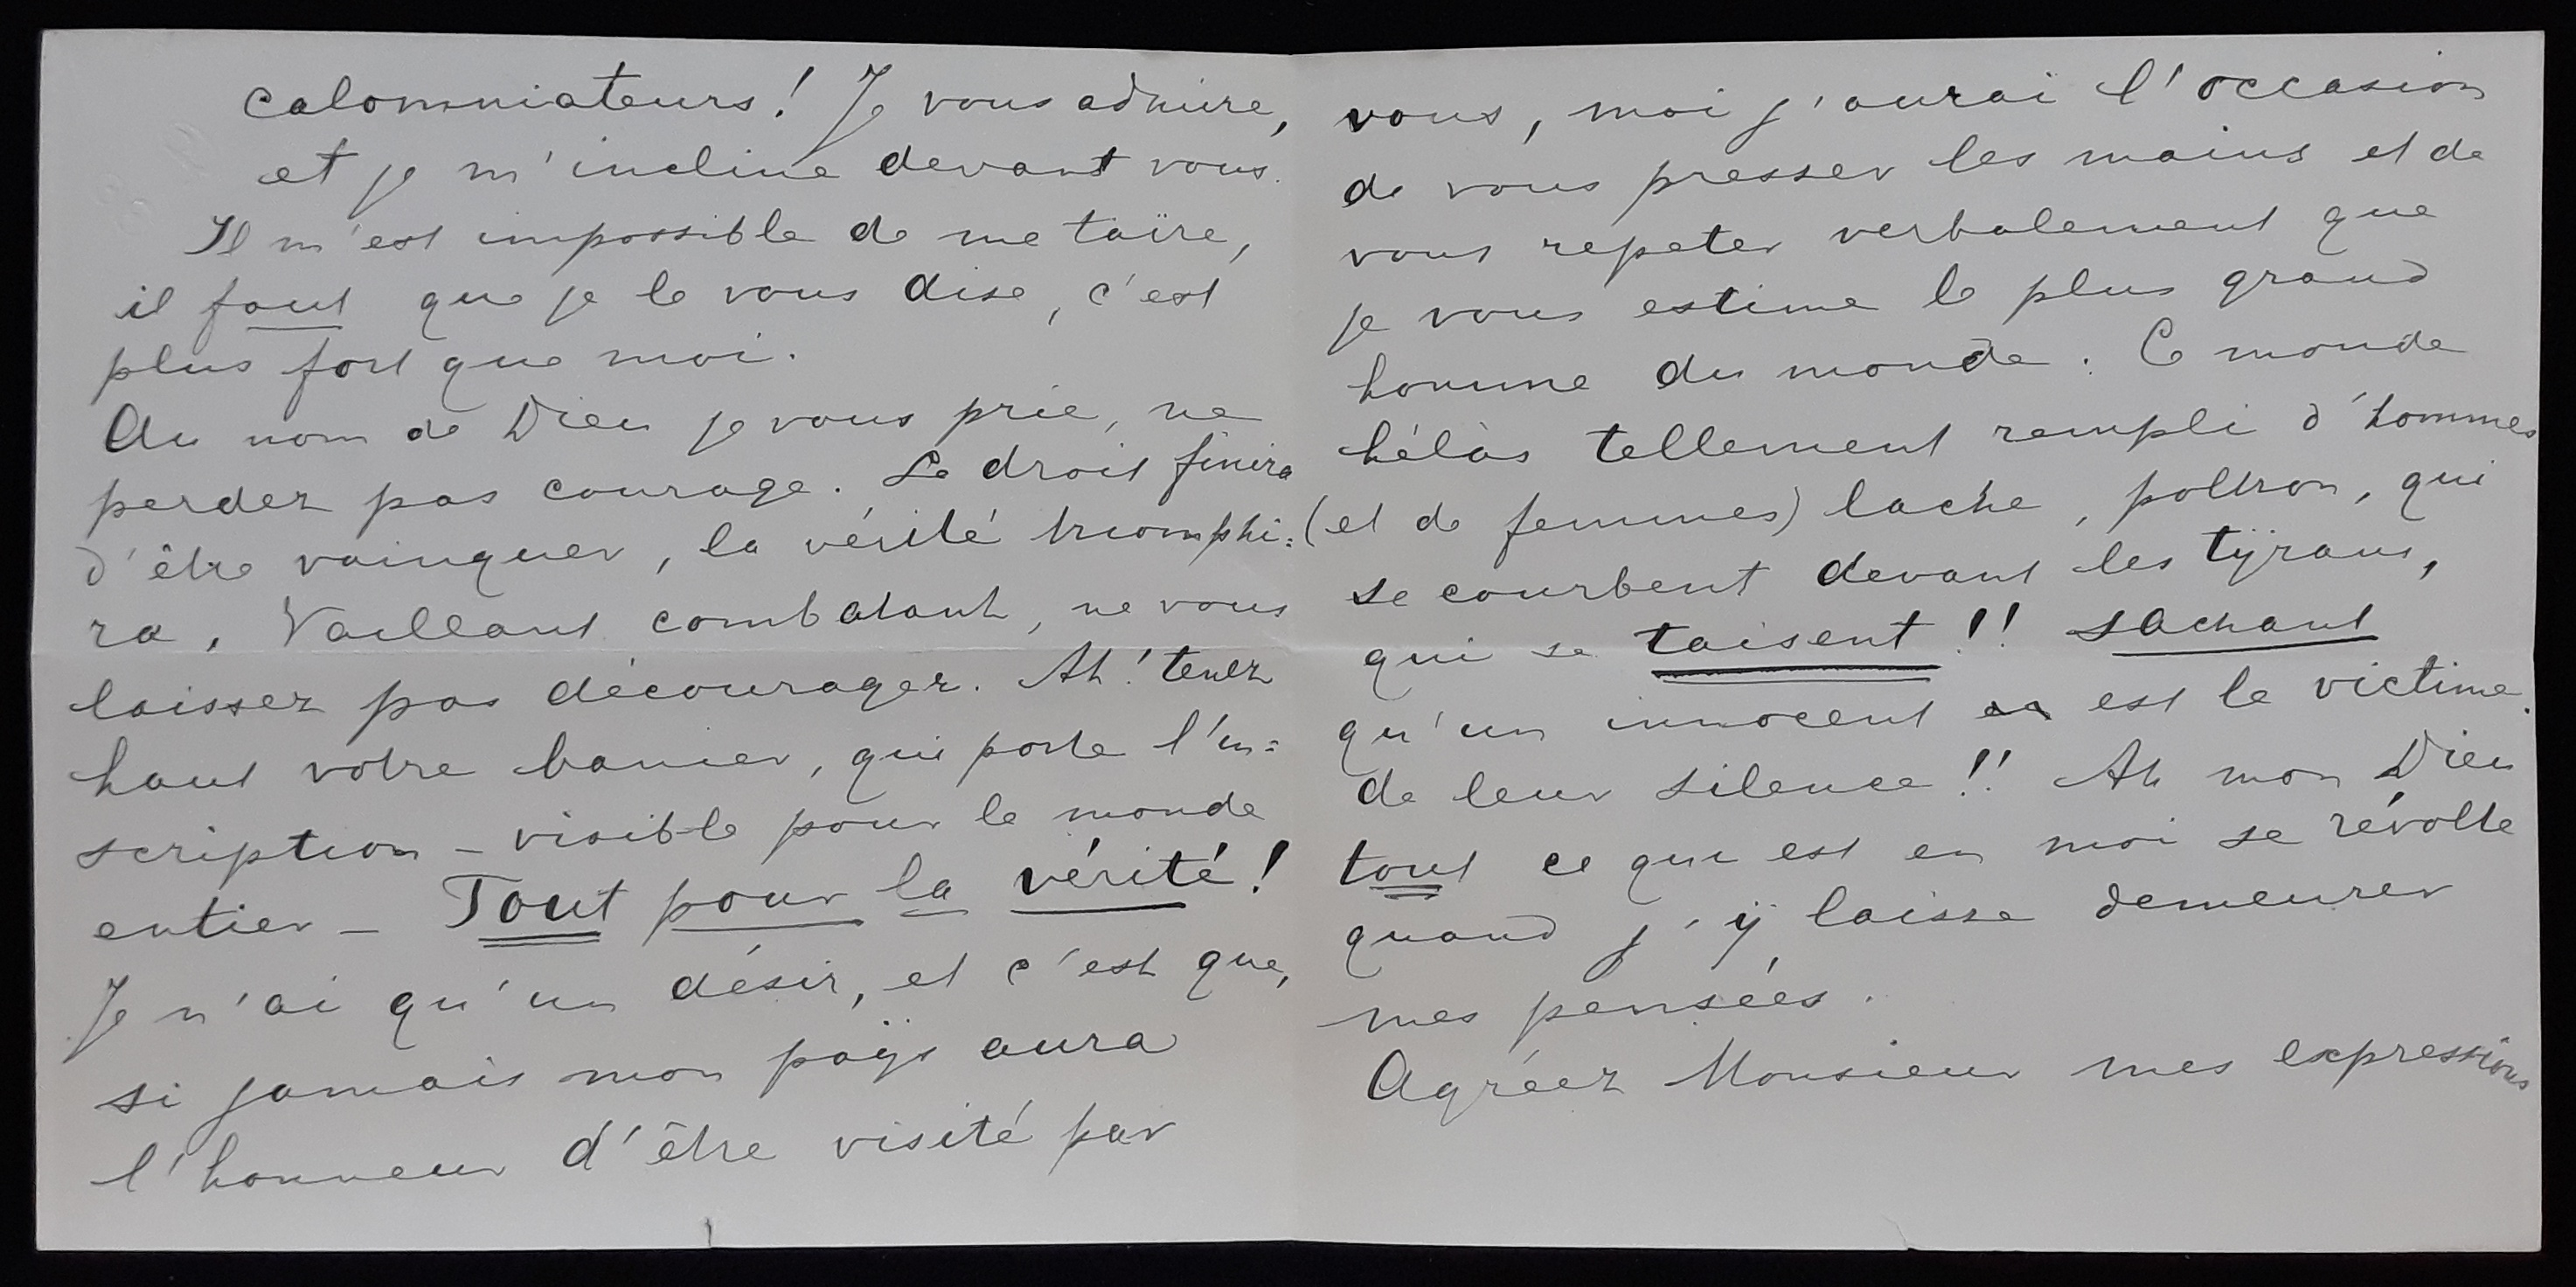 calomniateurs! Je vous admire,
et je m'incline devant vous.
Il m'est impossible de me taïre,
il faut que je le vous dise, c'est
plus fort que moi.
Au nom de Dieu je vous prie, ne
perdez pas courage. Le droit finira
d'être vainquer, la vérité triomphi=
ra, Vaillant combatant, ne vous
laissez pas décourager. Ah! tenez
haut votre banier, qui porte l'in=
scription – visible pour le monde
entier – Tout pour la vérité!
Je n'ai qu'un désir, et c'est que,
si jamais mon païjs aura
l'honneur d'être visité par
vous, moi j'aurai l'occasion
de vous presser les mains et de
vous repeter verbalement que
je vous estime le plus grand
homme du monde. Ce monde
hélàs tellement rempli d'hommes
(et de femmes) lache, poltron, qui
se courbent devant les tijrans,
qui se taisent!! sachant
qu'un innocent est le victime.
de leur silence!! Ah mon Dieu
tout ce qui est en moi se révolte
quand j'ij laisse demeurer
mes pensées.
Agréez Monsieur mes expressions